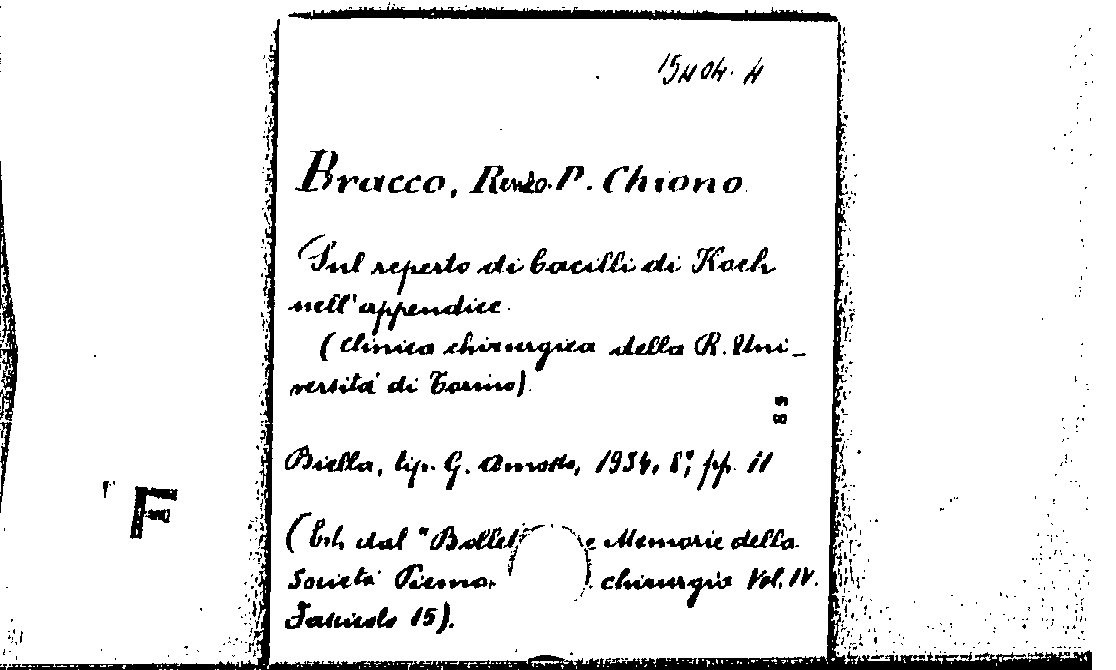 15404. A
Bracco, Renzo. P. Chiono
Sul reperto di bacilli di Koch
nell'appendice.
(Clinica chirurgica della R. Uni-
versità di Torino).
89
Biella, tip. G. Amosso, 1934, 8°, pp. 11
F
(Estr. dal "Bollet e Memorie della
Società Piemo. chirurgia Vol. IV.
Fascicolo 15).